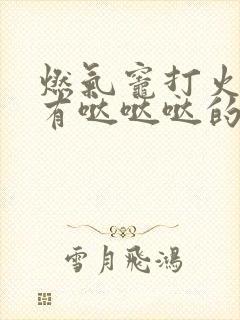 燃氣竈打火
有哒哒哒的
雪月飛鴻